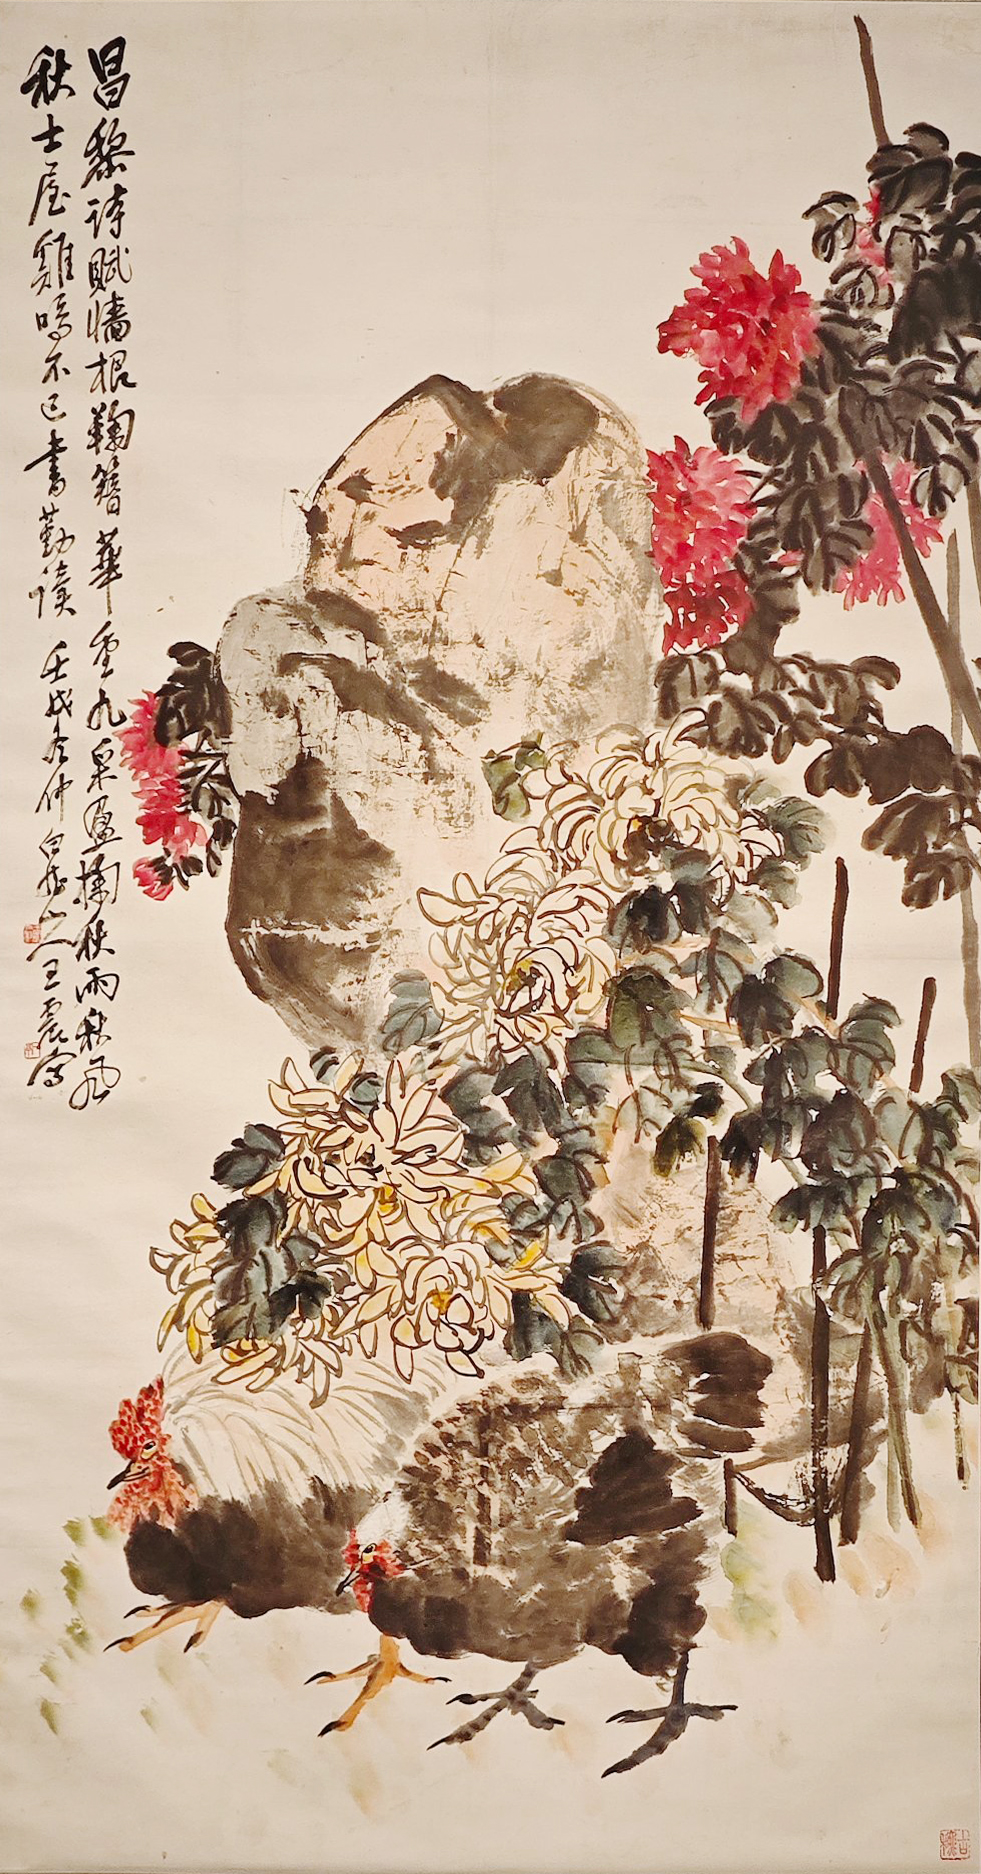 昌黎詩賦牆根鞠簪華重九泉盈掬秋雨秋風
秋士屋雞鳴不已書勤讀 壬戌冬仲白龍山人王震寫